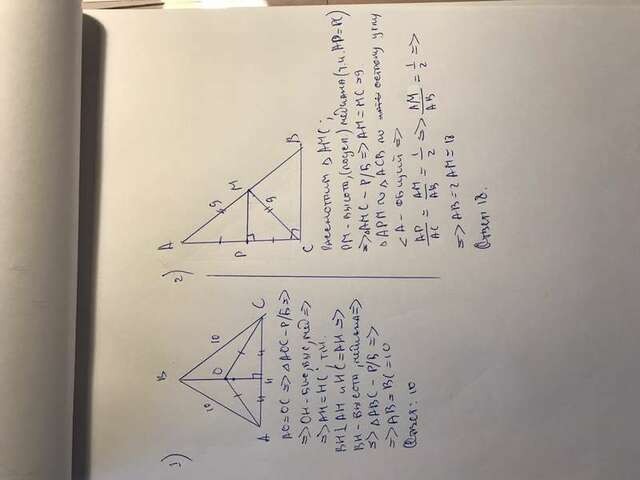 1)
B
10
10
O
A
H
C
AO=OC => △AOC - Р/Б =>
=> OH - бис, выс, мед =>
=> AH = HC; т.к.
BH ⊥ AH и HC = AH =>
BH - высота, медиана =>
=> △ABC - Р/Б =>
=> AB = BC = 10
Ответ: 10
2)
A
9
M
9
P
C
B
Рассмотрим △AMC:
PM - высота, медиана (т.к. AP=PC)
=> △AMC - Р/Б => AM = MC = 9
△APM ~ △ACB по острому углу
<A - общий =>
AP/AC = AM/AB = 1/2 => AM/AB = 1/2 =>
=> AB = 2AM = 18
Ответ 18.